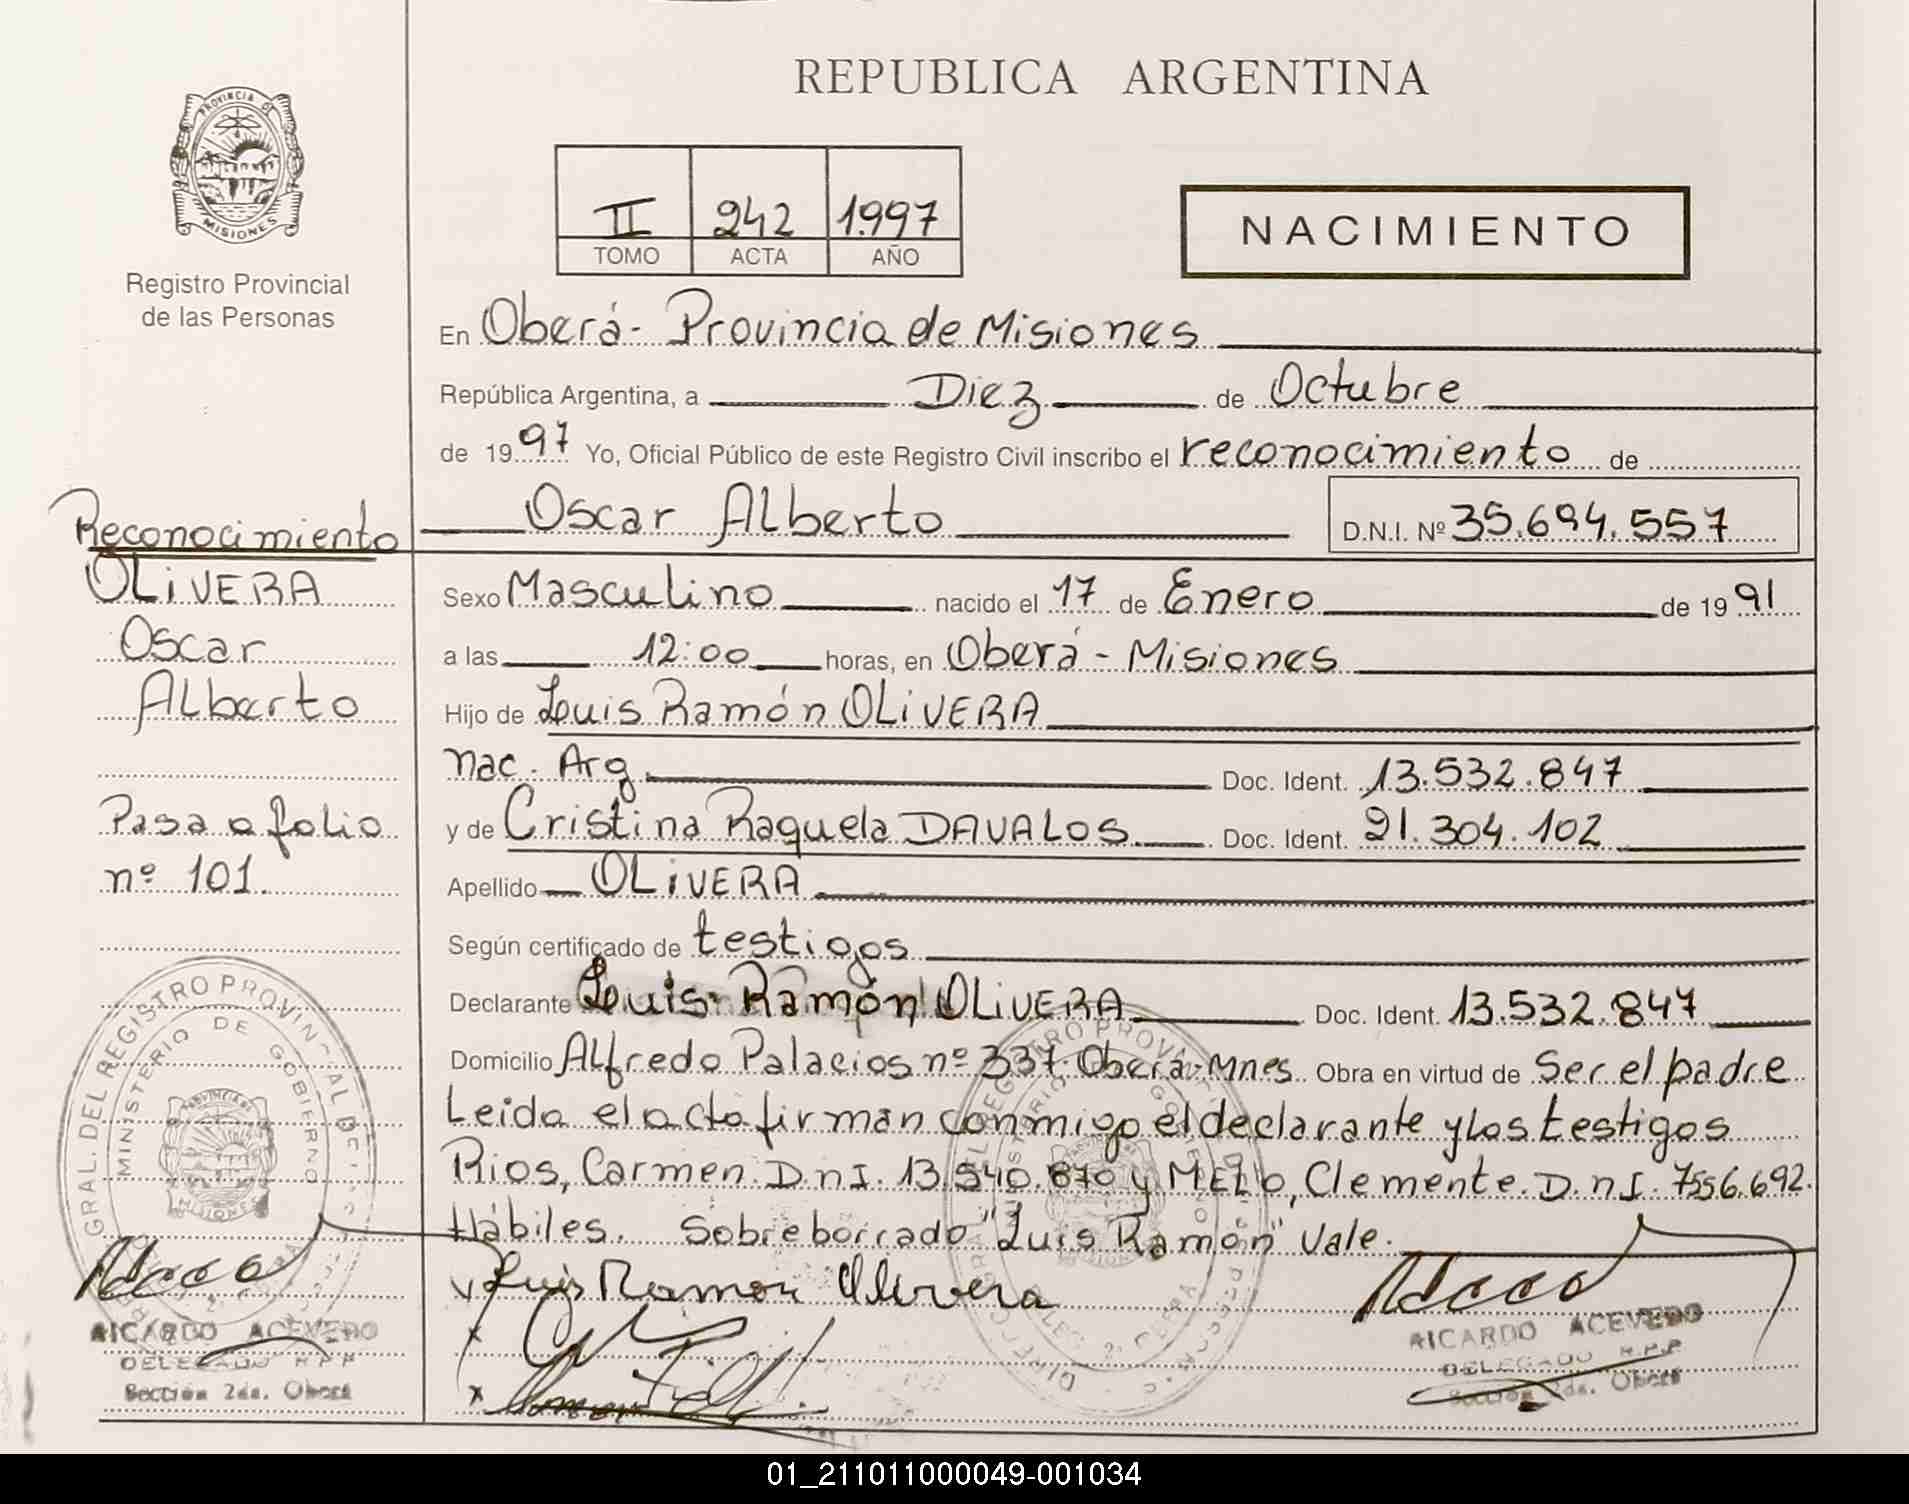 REPUBLICA ARGENTINA
PROVINCIA DE
MISIONES
Registro Provincial
de las Personas
II 242 1.997
TOMO ACTA AÑO
NACIMIENTO
En Oberá - Provincia de Misiones
República Argentina, a Diez de Octubre
de 1997 Yo, Oficial Público de este Registro Civil inscribo el reconocimiento de
Oscar Alberto D.N.I. Nº 35.694.557
Reconocimiento
OLIVERA
Oscar
Alberto
Pasa a folio
nº 101.
Sexo Masculino nacido el 17 de Enero de 1991
a las 12:00 horas, en Oberá - Misiones
Hijo de Luis Ramón OLIVERA
nac. Arg. Doc. Ident. 13.532.847
y de Cristina Raquela DAVALOS Doc. Ident. 21.304.102
Apellido OLIVERA
Según certificado de testigos
Declarante Luis Ramón OLIVERA Doc. Ident. 13.532.847
Domicilio Alfredo Palacios nº 337. Oberá-Mnes. Obra en virtud de Ser el padre
Leida el acta firman conmigo el declarante y los testigos
Rios, Carmen. D.n.I. 13.540.870 y MELO, Clemente. D.n.I. 7556.692.
Hábiles. Sobreborrado "Luis Ramón" Vale.
Luis Ramon Olivera
GRAL. DEL REGISTRO PROVINCIAL DE
MINISTERIO DE GOBIERNO
PROVINCIA DE
MISIONES
RICARDO ACEVEDO
DELEGADO R.P.P
Sección 2da. Oberá
RICARDO ACEVEDO
DELEGADO R.P.P
Sección 2da. Oberá
01_211011000049-001034